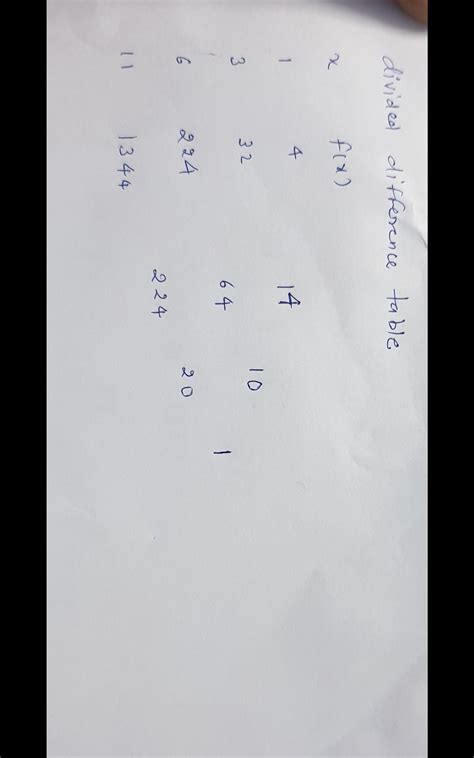 divided difference table
x f(x)
1 4
14
3 32 10
64 1
6 224 20
224
11 1344